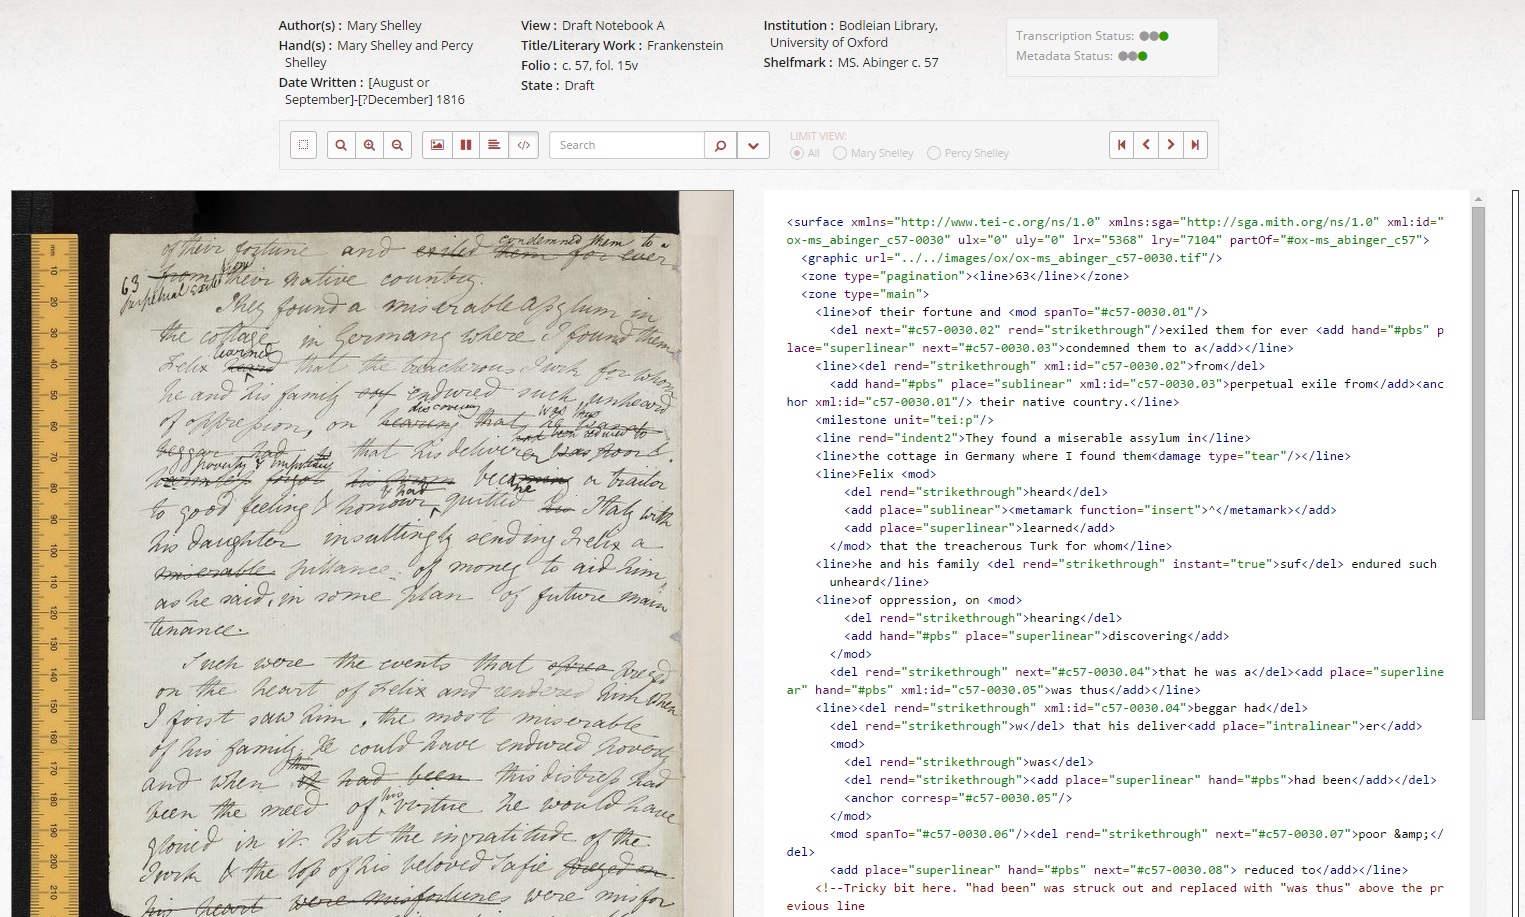 Author(s) : Mary Shelley
Hand(s) : Mary Shelley and Percy
Shelley
Date Written : [August or
September]-[?December] 1816
View : Draft Notebook A
Title/Literary Work : Frankenstein
Folio : c. 57, fol. 15v
State : Draft
Institution : Bodleian Library,
University of Oxford
Shelfmark : MS. Abinger c. 57
Transcription Status:
Metadata Status:
Search
LIMIT VIEW:
All Mary Shelley Percy Shelley
condemned them to a
of their fortune and exiled them for ever
63
from from their native country.
perpetual exile
They found a miserable assylum in
the cottage in Germany where I found them
learned
Felix heard that the treacherous Turk for whom
he and his family suf endured such unheard
discovering was thus
of oppression, on hearing that he was a
had been reduced to
beggar had w that his deliverer was poor &
poverty & impotence
became a traitor
& had
to good feeling & honour quitted his Italy with
his daughter insultingly sending Felix a
miserable pittance of money to aid him,
as he said, in some plan of future main
tenance.
Such were the events that preyed
on the heart of Felix and rendered him when
I first saw him, the most miserable
of his family. He could have endured poverty
this
and when it had been this distress had
his
been the meed of virtue he would have
gloried in it. But the ingratitude of the
Turk & the loss of his beloved Safie
his heart were misfortunes were misfor
mm
10
20
30
40
50
60
70
80
90
100
110
120
130
140
150
160
170
180
190
200
210
<surface xmlns="http://www.tei-c.org/ns/1.0" xmlns:sga="http://sga.mith.org/ns/1.0" xml:id="
ox-ms_abinger_c57-0030" ulx="0" uly="0" lrx="5368" lry="7104" partOf="#ox-ms_abinger_c57">
<graphic url="../../images/ox/ox-ms_abinger_c57-0030.tif"/>
<zone type="pagination"><line>63</line></zone>
<zone type="main">
<line>of their fortune and <mod spanTo="#c57-0030.01"/>
<del next="#c57-0030.02" rend="strikethrough"/>exiled them for ever <add hand="#pbs" p
lace="superlinear" next="#c57-0030.03">condemned them to a</add></line>
<line><del rend="strikethrough" xml:id="c57-0030.02">from</del>
<add hand="#pbs" place="sublinear" xml:id="c57-0030.03">perpetual exile from</add><anc
hor xml:id="c57-0030.01"/> their native country.</line>
<milestone unit="tei:p"/>
<line rend="indent2">They found a miserable assylum in</line>
<line>the cottage in Germany where I found them<damage type="tear"/></line>
<line>Felix <mod>
<del rend="strikethrough">heard</del>
<add place="sublinear"><metamark function="insert">^</metamark></add>
<add place="superlinear">learned</add>
</mod> that the treacherous Turk for whom</line>
<line>he and his family <del rend="strikethrough" instant="true">suf</del> endured such
unheard</line>
<line>of oppression, on <mod>
<del rend="strikethrough">hearing</del>
<add hand="#pbs" place="superlinear">discovering</add>
</mod>
<del rend="strikethrough" next="#c57-0030.04">that he was a</del><add place="superline
ar" hand="#pbs" xml:id="c57-0030.05">was thus</add></line>
<line><del rend="strikethrough" xml:id="c57-0030.04">beggar had</del>
<del rend="strikethrough">w</del> that his deliver<add place="intralinear">er</add>
<mod>
<del rend="strikethrough">was</del>
<del rend="strikethrough"><add place="superlinear" hand="#pbs">had been</add></del>
<anchor corresp="#c57-0030.05"/>
</mod>
<mod spanTo="#c57-0030.06"/><del rend="strikethrough" next="#c57-0030.07">poor &amp;</
del>
<add place="superlinear" hand="#pbs" next="#c57-0030.08"> reduced to</add></line>
<!--Tricky bit here. "had been" was struck out and replaced with "was thus" above the pr
evious line